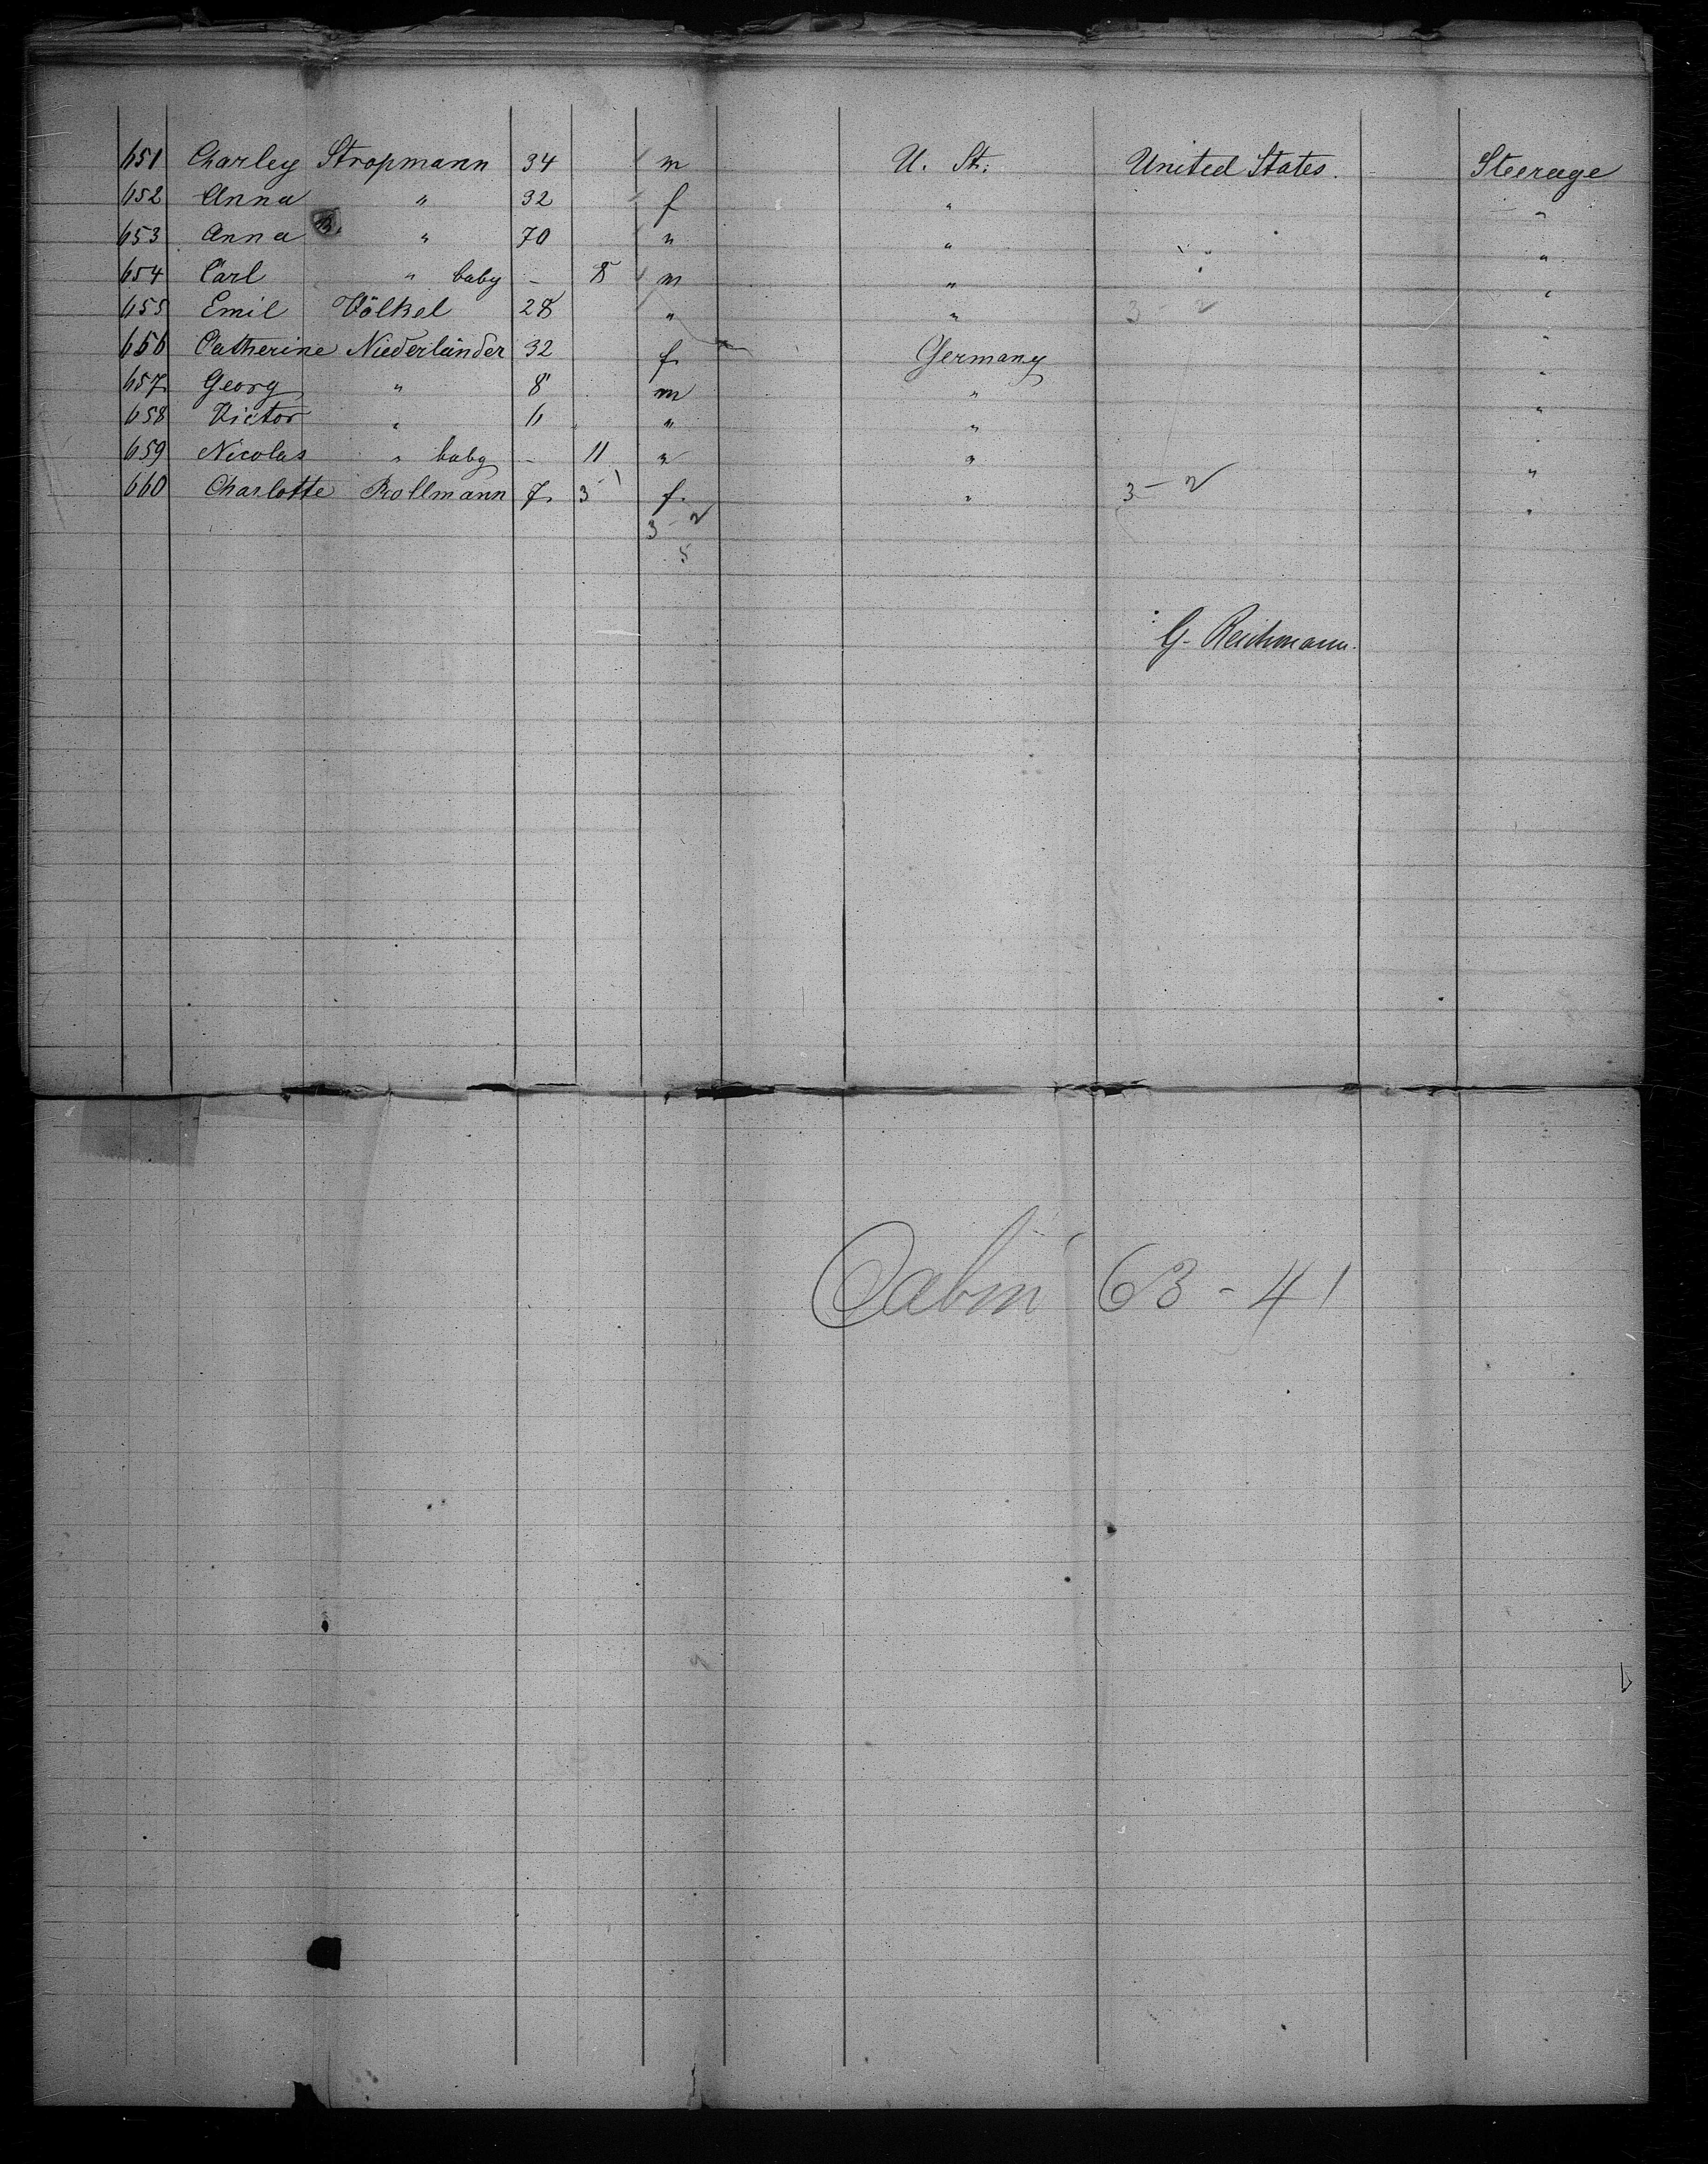 651 Charley Stropmann 34 m U. St. United States. Steerage
652 Anna " 32 f " "
653 Anna B. " 70 " " " "
654 Carl " baby - 8 m " "
655 Emil Völkel 28 " " 3 - 2 "
656 Catherine Niederländer 32 f. Germany "
657 Georg " 8 m " "
658 Victor " 6 " " "
659 Nicolas " baby - 11 " " "
660 Charlotte Rollmann 7. 3 - 1 f. " 3 - 2 "
3 - 2
5
G. Reichmann.
Cabin 63 - 41